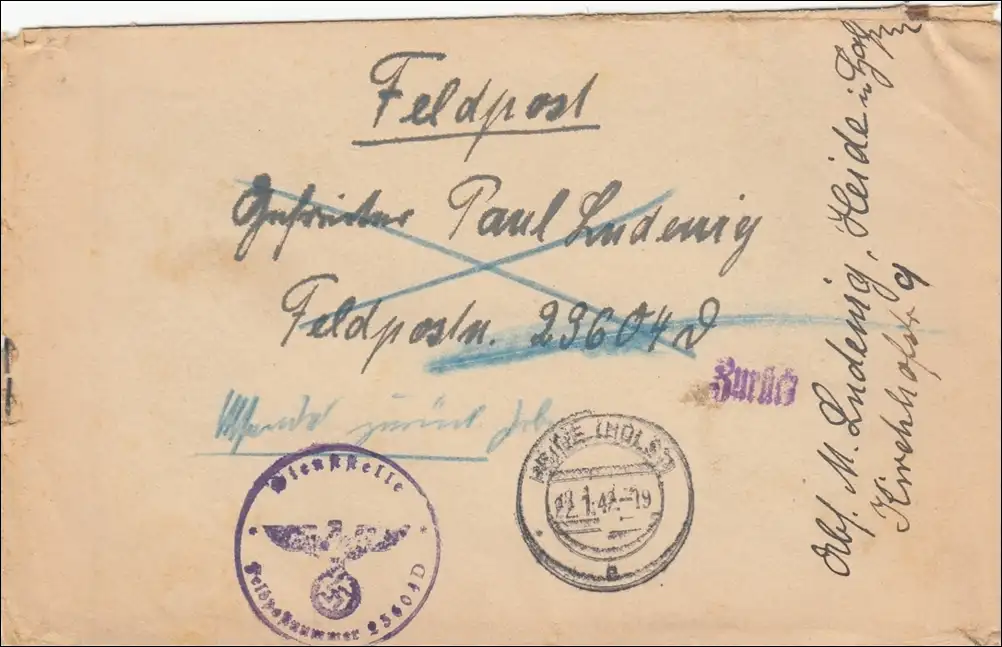 Feldpost
Gefreiter Paul Ludewig
Feldpostn. 23604 D
zurück
Zurück
HEIDE (HOLST)
22.1.42.-19
a
Dienststelle
Feldpostnummer 23604 D
Abs. M. Ludewig, Heide i. Holst
Kirchhofstr 9